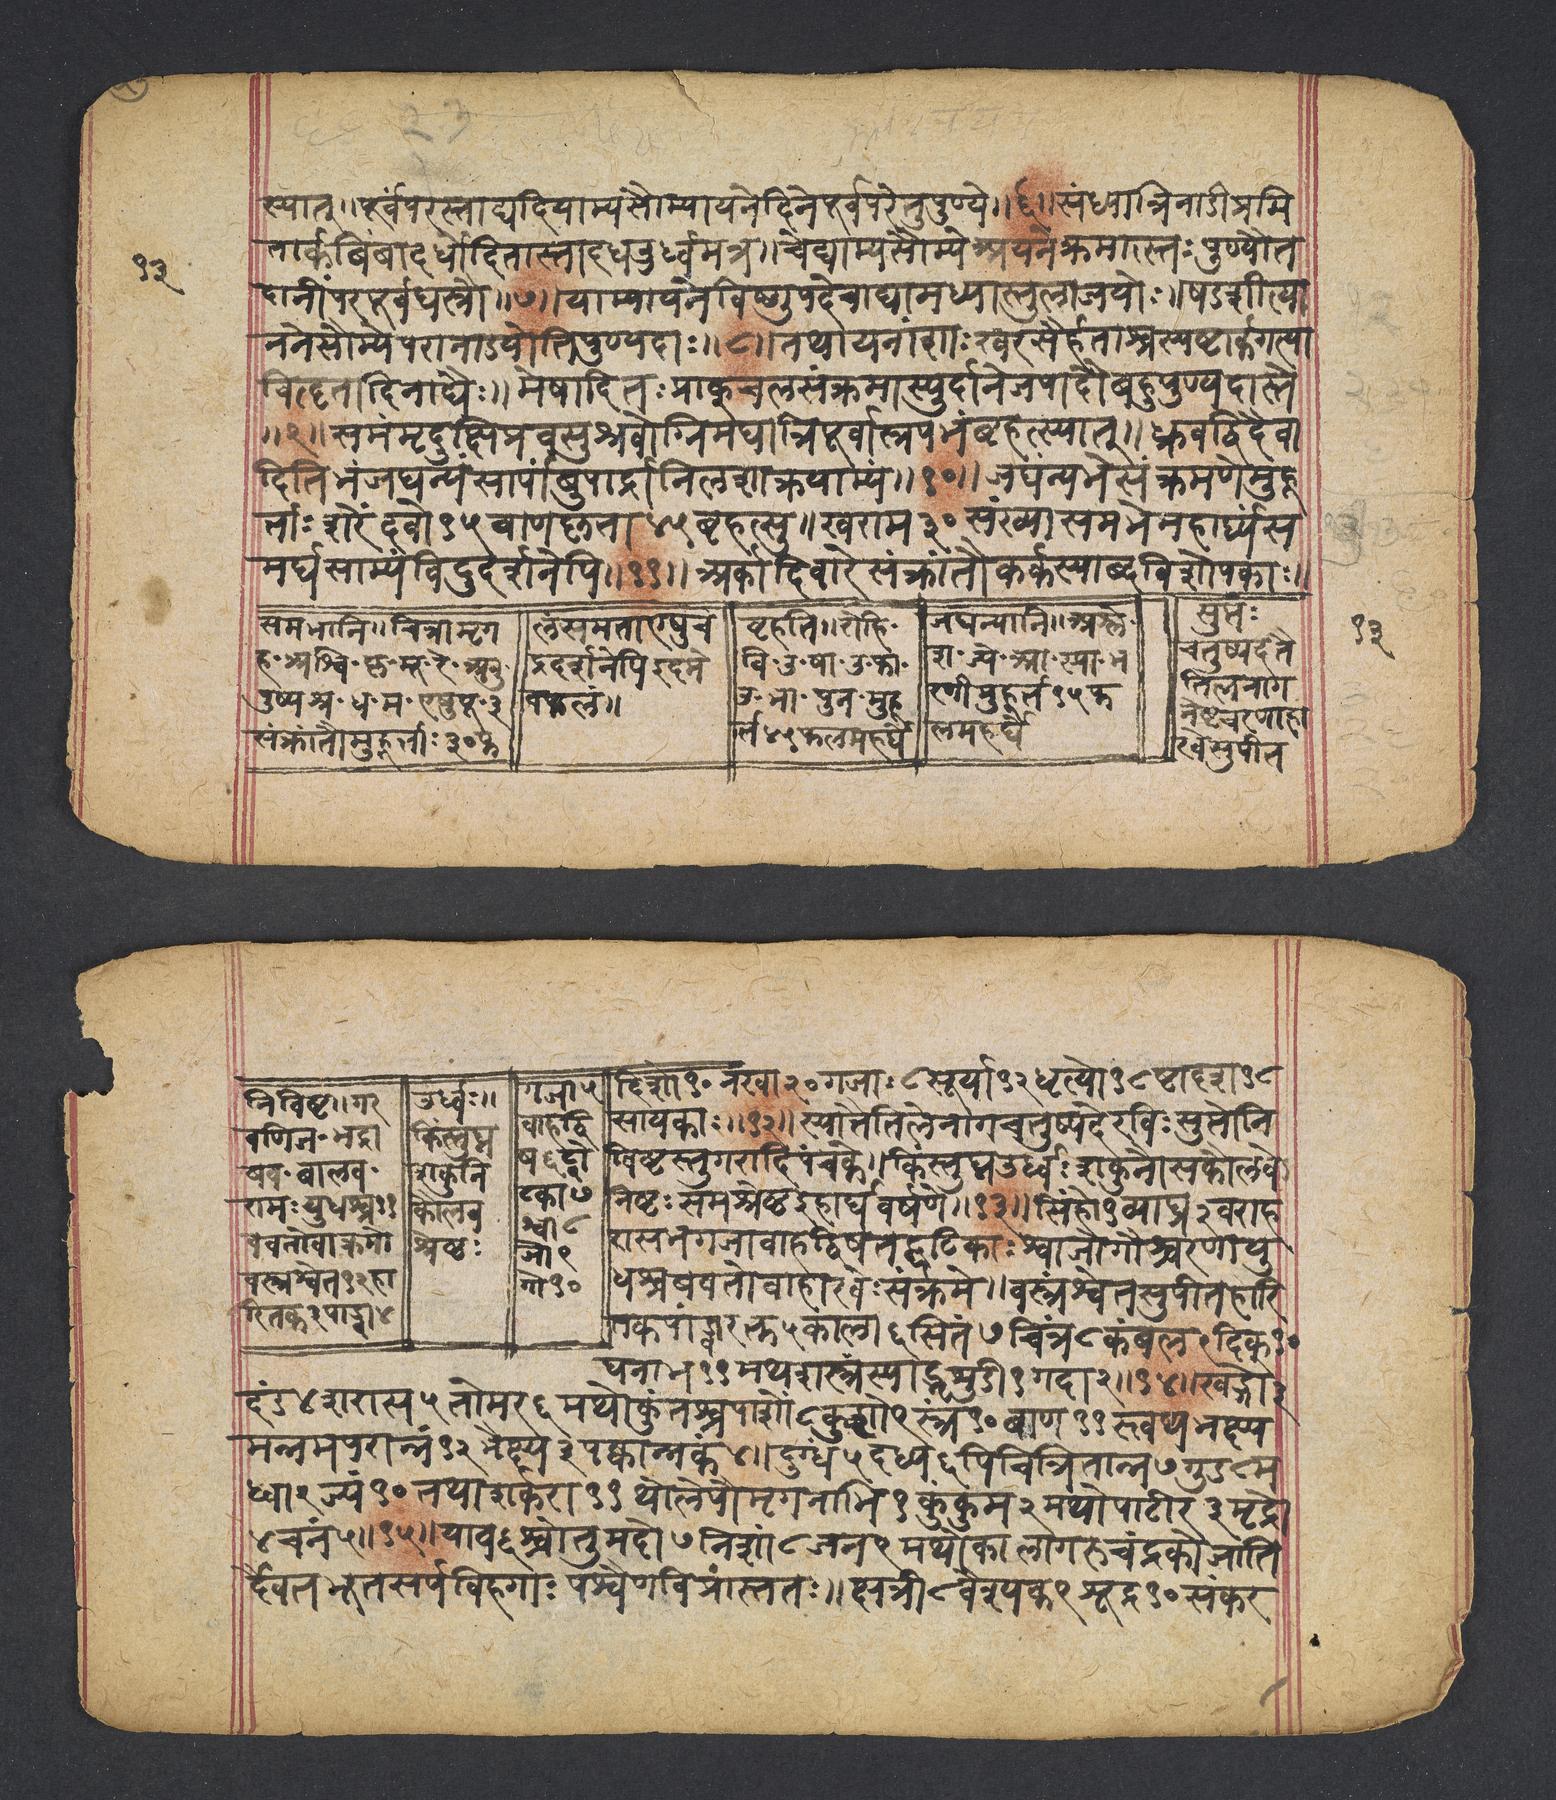 १३
स्यात्॥पूर्वंपरस्ताद्यदियाम्यसौम्यायनेदिनेपूर्वपरेतुपुण्ये॥६॥संध्यात्रिनाडीप्रमि
तार्कबिंबादर्धोदितास्तादधऊर्ध्वमत्र॥चेद्याम्यसौम्येअयनेक्रमात्स्तःपुण्यौत
दानींपरपूर्वघस्त्रौ॥७॥याम्यायनेविष्णुपदेचाद्यामध्यास्तुलाजयोः॥षडशीत्या
ननेसौम्येपरानाड्योतिपुण्यदाः॥८॥तथायनांशाःखरसैर्हताश्चस्पष्टार्कगत्या
विहृतादिनाद्यैः॥मेषादितःप्राक्चलसंक्रमास्युर्दानेजपादौबहुपुण्यदास्ते
॥९॥समंमृदुक्षिप्रवसुश्रवोग्निमघात्रिपूर्वास्रपभंबृहत्स्यात्॥ध्रुवद्विदैवा
दितिभंजघन्यंसार्पांबुपार्द्रानिलशाक्रयाम्यं॥१०॥जघन्यभेसंक्रमणेमुहू
र्ताःशरेंदवो१५बाणकृता४५बृहत्सु॥खराम३०संख्यासमभेमहार्घ्यस
मर्घसाम्यंविधुदर्शनेपि॥११॥अर्कादिवारेसंक्रांतौकर्कस्याब्दविशोपकाः॥
समभानि॥चित्रामृग
संक्रांतौमुहूर्ताः३०फ
लंसमताएषुच
द्रदर्शनेपिइदमे
वफलं॥
बृहति॥रोहि॰
वि॰उ॰षा॰उ॰फा॰
उ॰भा॰पुन॰मुहू
र्त४५फलमहर्घं
जघन्यानि॥अश्ले॰
श॰ज्ये॰आ॰स्वा॰भ
रणीमुहूर्त१५फ
लमहर्घं
सुप्तः
चतुष्पदतै
तिलनाग
१३
निविष्टः॥गर
वणिज॰भद्रा
बव॰बालव॰
उर्ध्वः॥
किंस्तुघ्न
शकुनि
कौलव
गजा५
दिशो१०नखा२०गजाः८सूर्या१२धृत्यो१८ष्टादश१८
सायकाः॥१२॥स्यात्तैतिलेनागचतुष्पदेरविःसुप्तोनि
विष्टस्तुगरादिपंचके॥किंस्तुघ्नउर्ध्वःशकुनौसकौलवे
निष्टःसमश्रेष्ठइहार्घवर्षणे॥१३॥सिंहो१व्याघ्र२वराह
रासभगजावाहद्विषत्घोटिकाःश्वाजोगौश्चरणायु
धश्चबवतोवाहारवेःसंक्रमे॥वस्त्रंश्वेतसुपीतहारि
तकपांड्वारक्त५काला६सितं७चित्रं८कंबल९दिक्१०
घनाभ११मथशस्त्रंस्याद्भुशुंडी१गदा२॥१४॥खड्गो३
दंड४शरास५तोमर६मथोकुंतश्चपाशों८कुशो९स्त्रं१०बाण११स्त्वथभक्ष्य
मन्नमपरान्नं१२भैक्ष्यं३पक्वान्नकं४॥दुग्धं५दध्य६पिचित्रितान्न७गुड८म
ध्वा९ज्यं१०तथाशर्करा११थोलेपोमृगनाभि१कुंकुम२मथोपाटीर३मृद्रो
४चनं५॥१५॥याव६श्चोतुमदो७निशां८जन९मथोकालागरुचंद्रकोजाति
र्दैवतभूतसर्पविहगाःपश्वेणविप्रास्ततः॥क्षत्री८वैश्यक९शूद्र१०संकर